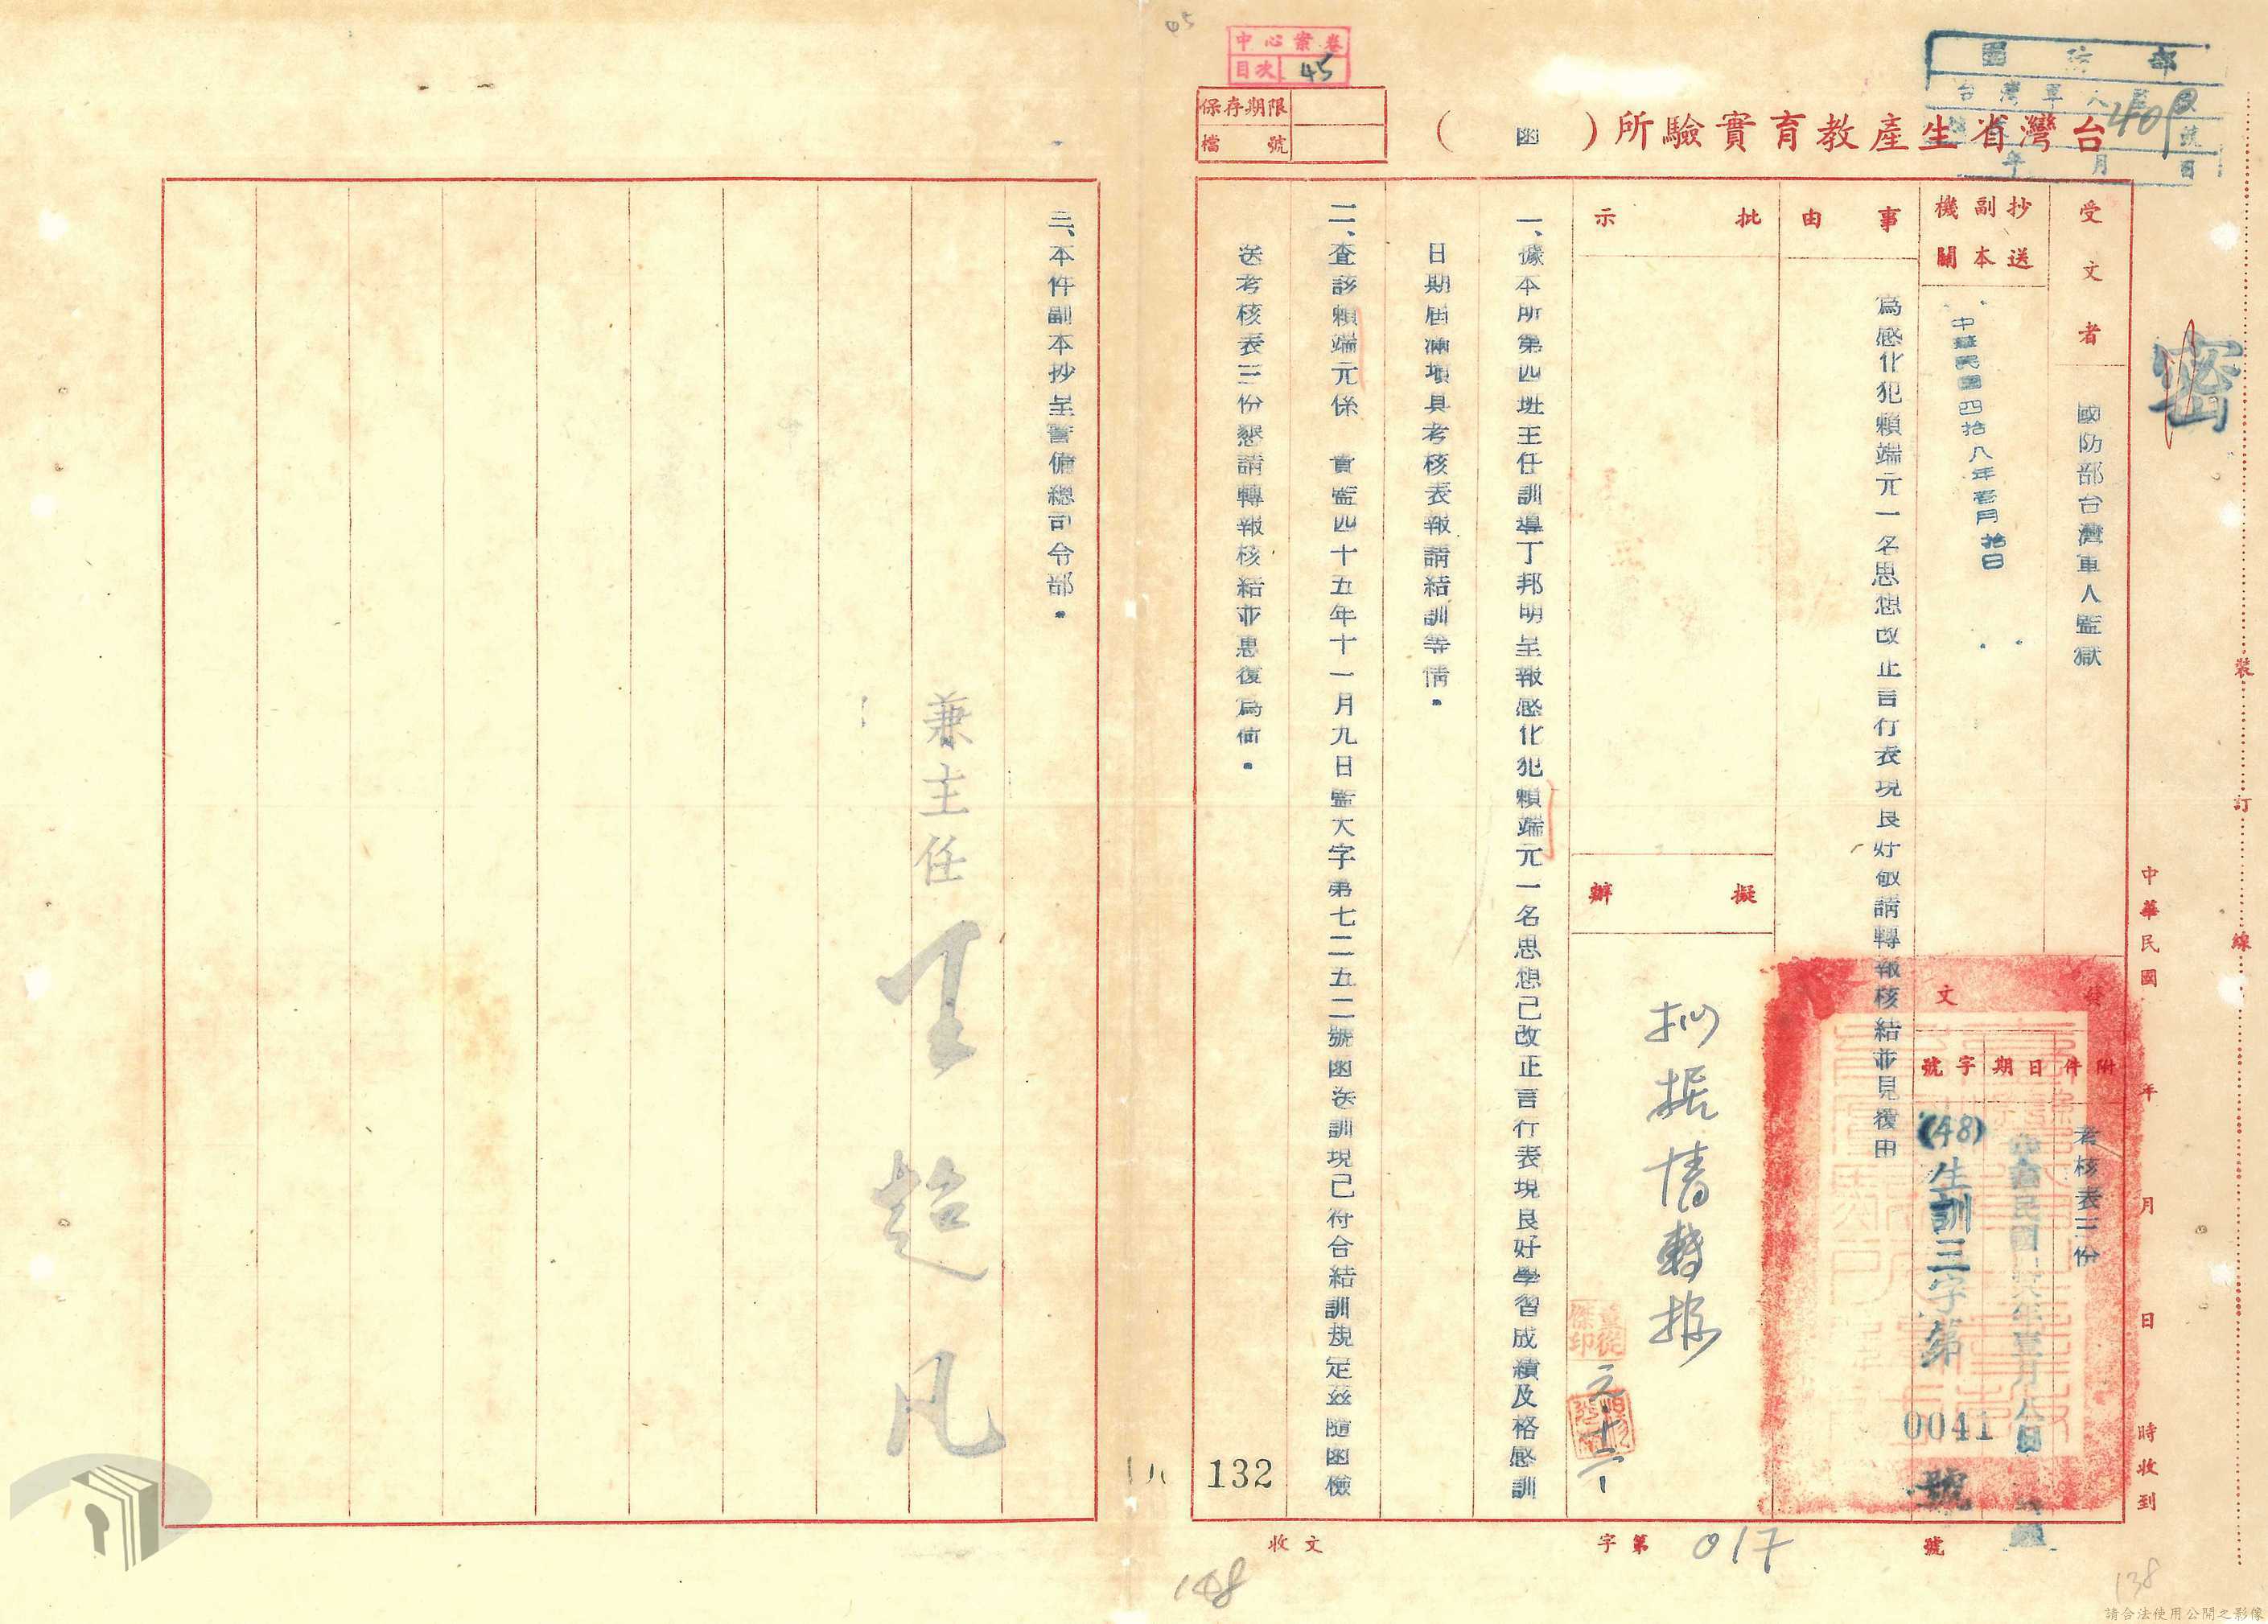 05
中心案卷
目次 45
保存期限
檔號
台灣省生產教育實驗所(函)
國防部
台灣軍人監獄
年 月 日
密
受文者
國防部台灣軍人監獄
抄送副本機關
中華民國四拾八年壹月拾日
事由
為感化犯賴端元一名思想改正言行表現良好敬請轉報核結並見復由
批示
擬辦
拟据情轉报
元.十二
發文
附件
考核表三份
日期
中華民國 年壹月八日
字號
(48)生訓三字第0041號
一、據本所第四班主任訓導丁邦明呈報感化犯賴端元一名思想已改正言行表現良好學習成績及格感訓
日期屆滿填具考核表報請結訓等情。
二、查該賴端元係 貴監四十五年十一月九日監大字第七二五二號函送訓現已符合結訓規定茲隨函檢
送考核表三份懇請轉報核結並惠復為荷。
三、本件副本抄呈警備總司令部。
兼主任 王超凡
裝 訂 線
中華民國 年 月 日 時收到
132
收文 字第 017 號
148
138
請合法使用公開之影像